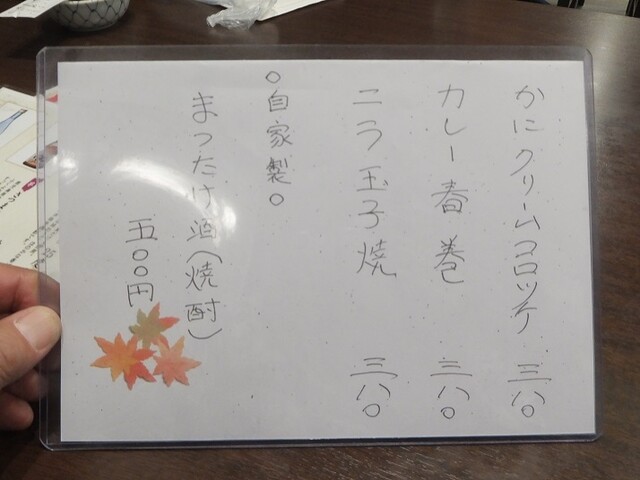 かにクリームコロッケ 三八〇
カレー春巻 三八〇
ニラ玉子焼 三八〇
○自家製○
まつたけ酒(焼酎)
五〇〇円